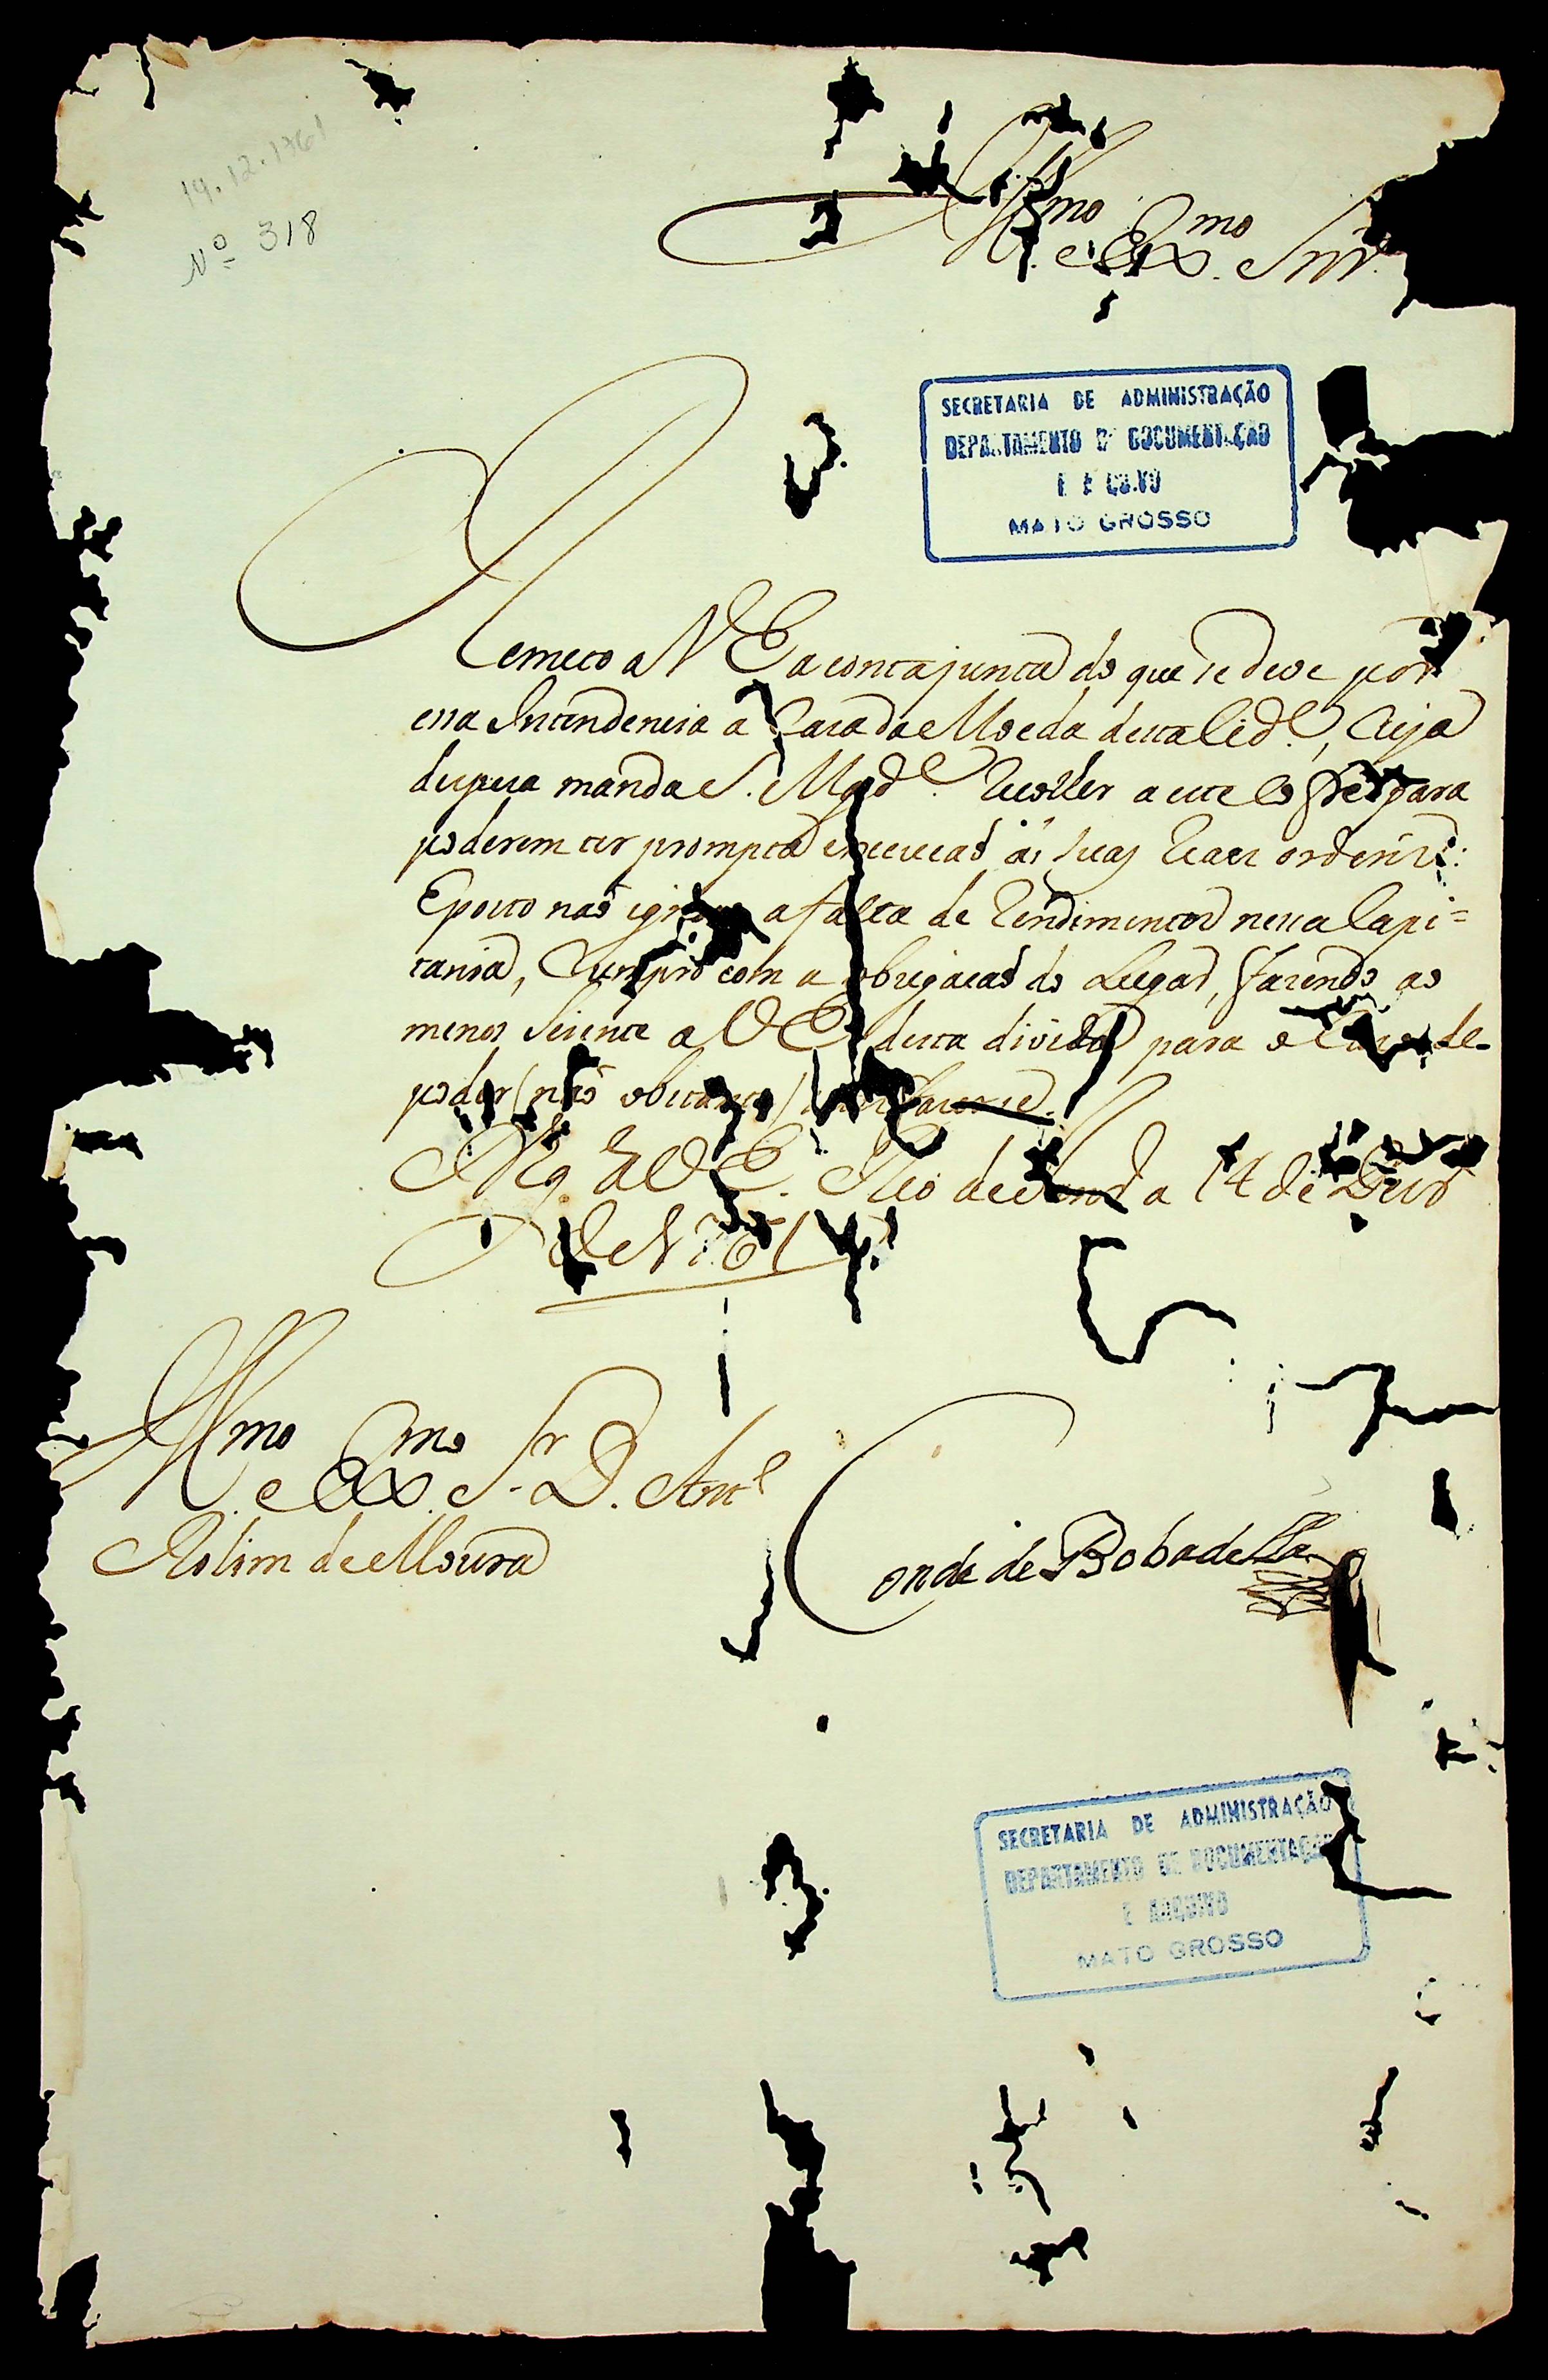 19.12.1761
Nº 318
Illmo e Exmo Snr
SECRETARIA DE ADMINISTRAÇÃO
DEPARTAMENTO DE DOCUMENTAÇÃO
E
MATO GROSSO
Remeto a V E a conta junta do que se deve por
essa Intendencia a Casa da Moeda desta Cide, Cuja
despeza manda S. Magde. recolher a este Cofre para
poderem ter prompta execucaõ ás suas Reaes ordens:
E posto naõ ignoro a falta de Rendimentos nessa Capi=
tania, Cumpro com a obrigacaõ do Lugar, fazendo ao
menos sciente a V E desta divida para o de
poder (naõ obstante)
Ds gde a V E. Rio de a 14 de Dezro
de 1761
Illmo e Exmo Sr D. Anto
Rolim de Moura
Conde de Bobadella
SECRETARIA DE ADMINISTRAÇÃO
DEPARTAMENTO DE DOCUMENTAÇÃO
E ARQUIVO
MATO GROSSO